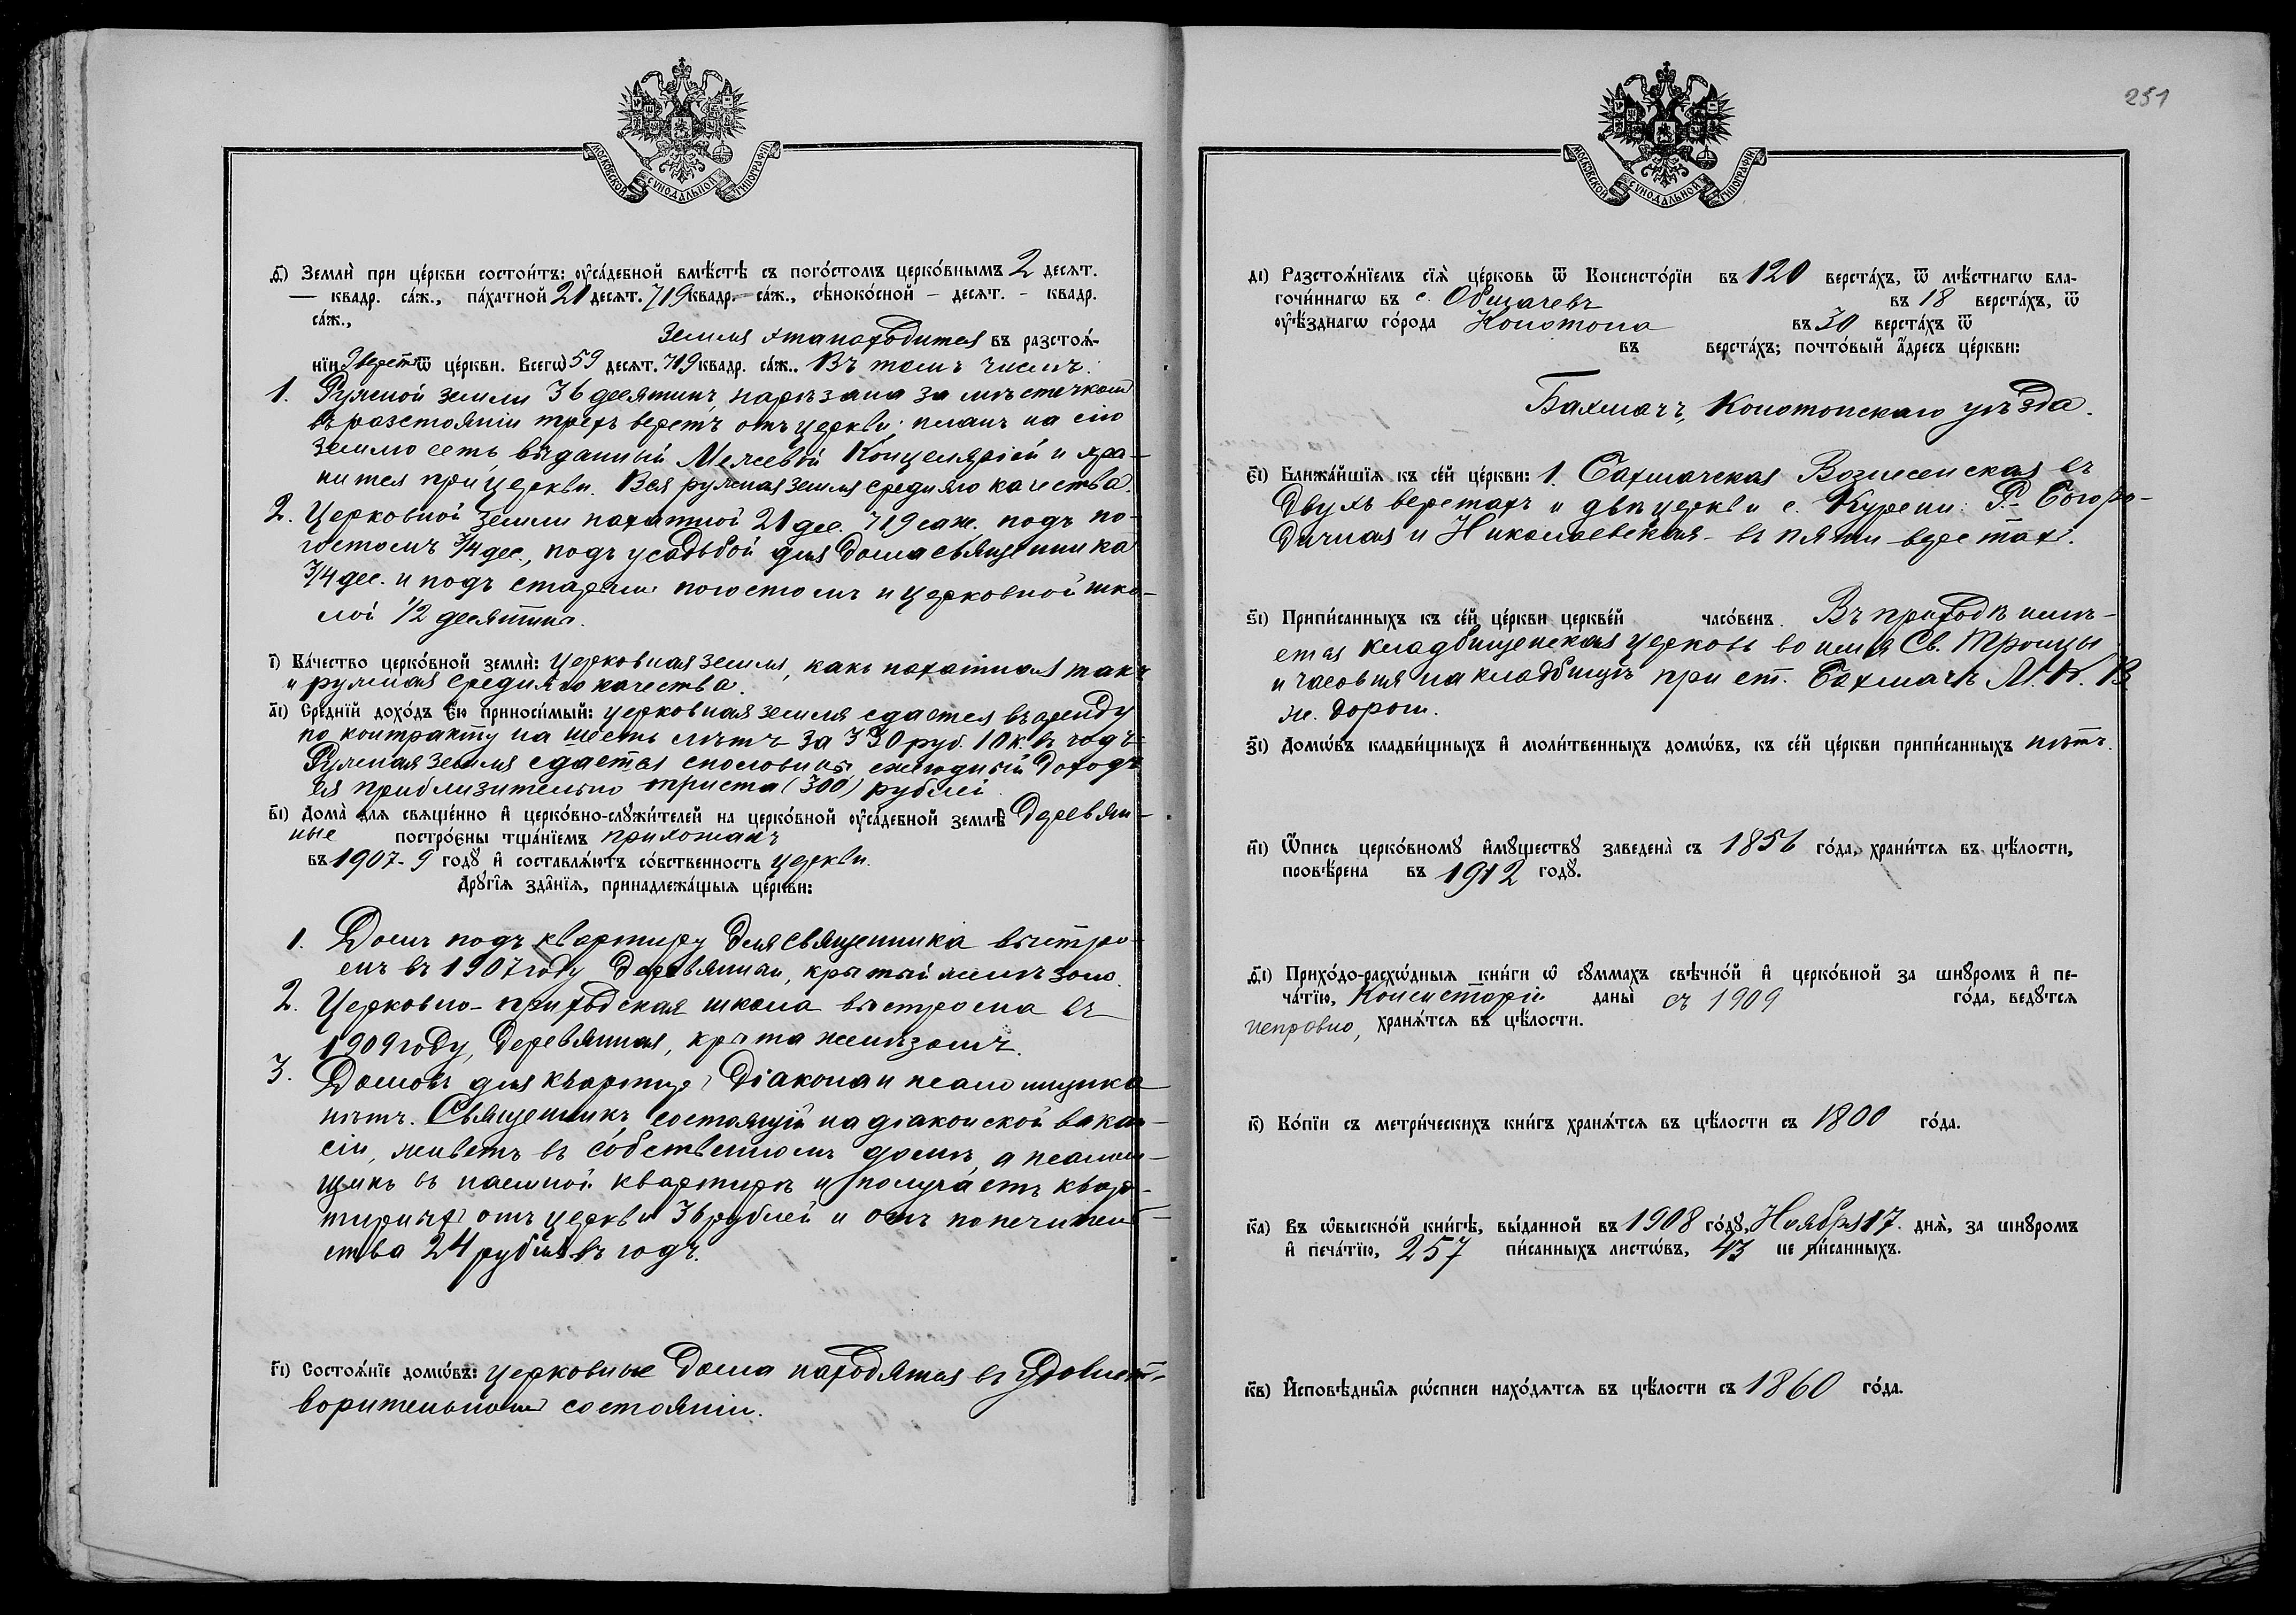 МОСКОВСКОЙ СУНОДАЛЬНОЙ ТИПОГРАФІИ
ѳ҃) Землѝ при це́ркви состои́тъ: ᲂу҆са́дебной вмѣ́стѣ съ пого́стомъ церко́внымъ 2 десят.
— квадр. са́ж., па́хатной 21 десят. 719 квадр. са́ж., сѣноко́сной – десят. - квадр.
са́ж.,
Земля эта находится въ разстоѧ́-
нїи 3 верстъ ѿ це́ркви. Всегѡ̀ 59 десят. 719 квадр. са́ж.. Въ томъ числѣ:
1. Ружной земли 36 десятинъ, нарѣзана за мѣстечкомъ
въ разстояніи трехъ верстъ отъ церкви; планъ на сію
землю есть выданный Межевой Канцеляріей и хра-
нится при церкви. Вся ружная земля средняго качества.
2. Церковной земли пахатной 21 дес. 719 саж. подъ по-
гостомъ 3/4 дес., подъ усадьбой для дома священника
3/4 дес. и подъ старымъ погостомъ и церковной шко-
лой 1/2 десятины.
і҃) Ка́чество церко́вной землѝ: Церковная земля, какъ пахатная такъ
и ружная средняго качества.
а҃і) Сре́днїй дохо́дъ е҆́ю приноси́мый: церковная земля сдается въ аренду
по контракту на шесть лѣтъ за 330 руб. 10 к. въ годъ
Ружная земля сдается споловины ежегодный доходъ
ея приблизительно триста (300) рублей
в҃і) Дома̀ для свяще́нно и҆ церко́вно-слꙋжи́телей на церко́вной ᲂу҆са́дебной землѣ̀ деревян-
ные постро́єны тща́нїемъ прихожанъ
въ 1907-9 годꙋ̀ и҆ составлѧ́ютъ со́бственность церкви.
Дрꙋгі̑ѧ зда̑нїѧ, принадлежа́щыѧ це́ркви:
1. Домъ подъ квартиру для священника выстро-
енъ въ 1907 году деревянный, крытый желѣзомъ.
2. Церковно-приходская школа выстроена въ
1909 году, деревянная, крыта желѣзомъ.
3. Домовъ для квартиръ діакона и псаломщика
нѣтъ. Священникъ, состоящій на діаконской вакан-
сіи, живетъ въ собственномъ домѣ, а псалом-
щикъ въ наемной квартирѣ и получаетъ квар-
тирныхъ отъ церкви 36 рублей и отъ попечитель-
ства 24 рубля въ годъ.
г҃і) Состоѧ́нїе домѡ́въ: церковные дома находятся въ удовлет-
ворительномъ состояніи.
251
МОСКОВСКОЙ СУНОДАЛЬНОЙ ТИПОГРАФІИ
д҃і) Разстоѧ́нїемъ сїѧ̀ це́рковь ѿ Консисто́рїи въ 120 верста́хъ, ѿ мѣ́стнагѡ бла-
гочи́ннагѡ въ с. Обмачевѣ въ 18 верста́хъ, ѿ
ᲂу҆ѣ́зднагѡ го́рода Конотопа въ 30 верста́хъ ѿ
въ верста́хъ; почто́вый а҆́дресъ це́ркви:
Бахмачъ, Конотопскаго уѣзда.
є҃і) Ближа́йшїѧ къ се́й це́ркви: 1. Бахмачская Вознесенская въ
двухъ верстахъ и двѣ церкви с. Курени: Р.-Богоро-
дичная и Николаевская – въ пяти верстахъ.
ѕ҃і) Припи́санныхъ къ се́й це́ркви церкве́й часо́венъ. Въ приходѣ имѣ-
ется кладбищенская церковь во имя Св. Троицы
и часовня на кладбищѣ при ст. Бахмачъ М. К. В.
ж. дороги.
з҃і) Домѡ́въ кладби́щныхъ и҆ моли́твенныхъ домѡ́въ, къ се́й це́ркви припи́санныхъ нѣтъ.
и҃і) Ѻ҆́пись церко́вномꙋ и҆мꙋ́ществꙋ заведена̀ съ 1856 го́да, храни́тся въ цѣ́лости,
провѣ́рена въ 1912 годꙋ̀.
ѳ҃і) Прихо́до-расхѡ́дныѧ кни́ги ѡ҆ сꙋ́ммахъ свѣчно́й и҆ церко́вной за шнꙋро́мъ и҆ пе-
ча́тїю, Консисторіи даны̀ съ 1909 го́да, ведꙋ́тся
исправно, хранѧ́тся въ цѣ́лости.
к҃) Ко́пїи съ метри́ческихъ кни́гъ хранѧ́тся въ цѣ́лости съ 1800 го́да.
к҃а) Въ ѡ҆быскно́й кни́гѣ, вы́данной въ 1908 го́дꙋ, Ноября 17. днѧ̀, за шнꙋро́мъ
и҆ печа́тїю, 257 пи́санныхъ листѡ́въ, 43 не пи́санныхъ.
к҃в) И҆сповѣ́дныѧ рѡ́списи нахо́дятся въ цѣ́лости съ 1860 го́да.